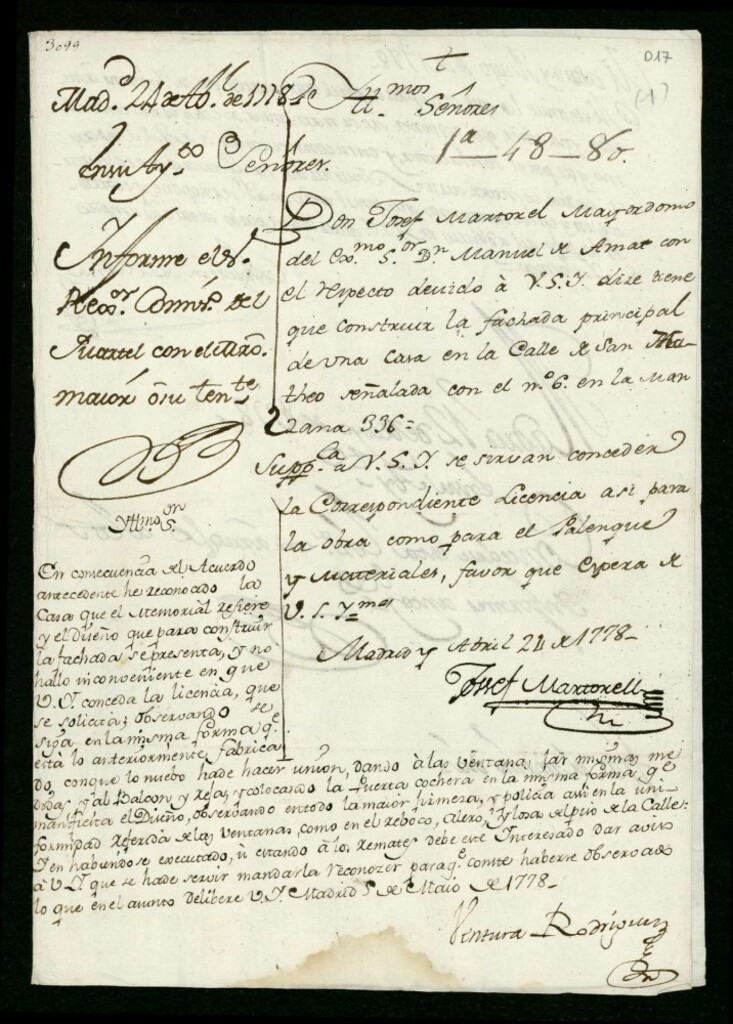 3099
D17
(1)
Mad.d 24 de Ab.l de 1778
En su Ay.to
Señores.
Informe el S.r
Reg.or Comis.o del
Quartel con el Mro.
maior ô su tente
Yllmo S.or
En consecuencia del Acuerdo
antecedente he reconocido la
Casa que el Memorial refiere
y el diseño que para construir
la fachada se presenta, y no
hallo inconveniente en que
V.Y. conceda la licencia, que
se solicita; observando se
siga en la misma forma q.e
està lo anteriormente fabrica
do, con que lo nuebo ha de hacer union, dando à las ventanas las mismas me
didas, y al Balcon y rejas, y colocando la puerta cochera en la misma forma q.e
manifiesta el Diseño, observando en todo la maior firmeza, y policia asi en la uni-
formidad referida de las ventanas, como en el reboco, alero, y losas al piso de la Calle:
Y en habiendose executado, ù estando à los remates debe este Interesado dar aviso
à V.Y. que se ha de servir mandarla reconozer para q.e conste haberse observado
lo que en el asunto delibere V.Y. Madrid 5 de Maio de 1778-
Ventura Rodriguez
Yll.mos Señores
1a_48_80.
Don Josef Martorel Mayordomo
del Ex.mo S.or D.n Manuel de Amat con
el respecto devido à V.S.Y. dize tiene
que construir la fachada principal
de una Casa en la Calle de San Ma-
theo señalada con el n.o 6. en la Man
zana 336=
Supp.ca a V.S.Y. se sirvan conceder
la Correspondiente Licencia asi para
la obra como para el Palenque
y Materiales, favor que espera de
V.S.Y.mas
Madrid y Abril 24 de 1778-
Josef Martorell